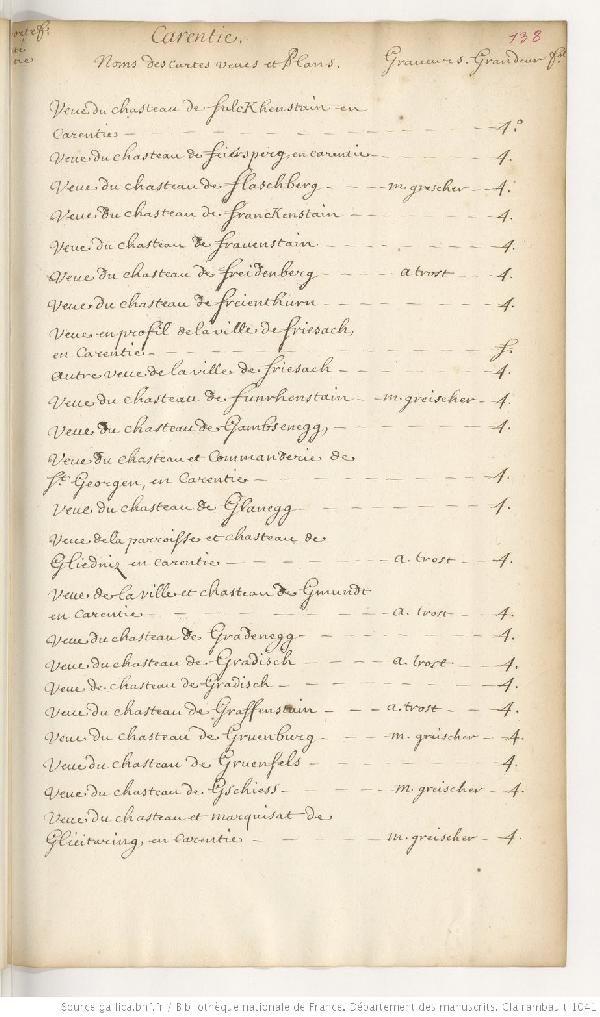 Carentie. 138
Noms des cartes veues et Plans. Graveurs. Grandeur
Veue du chasteau de fulckhenstain en
Carentie - 4.º
Veue du chasteau de feiersperg, en carentie - 4.
Veue du chasteau de flaschberg - m. grescher - 4.
Veue du chasteau de franckenstain - 4.
Veue du chasteau de fravenstain - 4.
Veue du chasteau de freidenberg - a trost - 4.
Veue du chasteau de freienthurn - 4.
Veue en profil de la ville de friesach,
en Carentie - f.
autre veue de la ville de friesach - 4.
Veue du chasteau de funrhenstain - m. greischer - 4.
Veue du chasteau de Gambsenegg, - 4.
Veue du chasteau et Commanderie de
St. Georgen, en Carentie - 4.
Veue du chasteau de Glanegg - 4.
Veue de la parroisse et chasteau de
Gliedniz en carentie - a. trost - 4.
Veue de la ville et chasteau de Gmundt
en carentie - a. trost - 4.
Veue du chasteau de Gradenegg - 4.
Veue du chasteau de Gradisch - a. trost - 4.
Veue de chasteau de Gradisch - 4.
Veue du chasteau de Graffenstain - a. trost - 4.
Veue du chasteau de Gruenburg - m. greischer - 4.
Veue du chasteau de Gruenfels - 4.
Veue du chasteau de Gschiess - m. greischer - 4.
Veue du chasteau et marquisat de
Glieitaring, en carentie - m. greischer - 4.
Source gallica.bnf.fr / Bibliothèque nationale de France. Département des manuscrits. Clairambault 1041